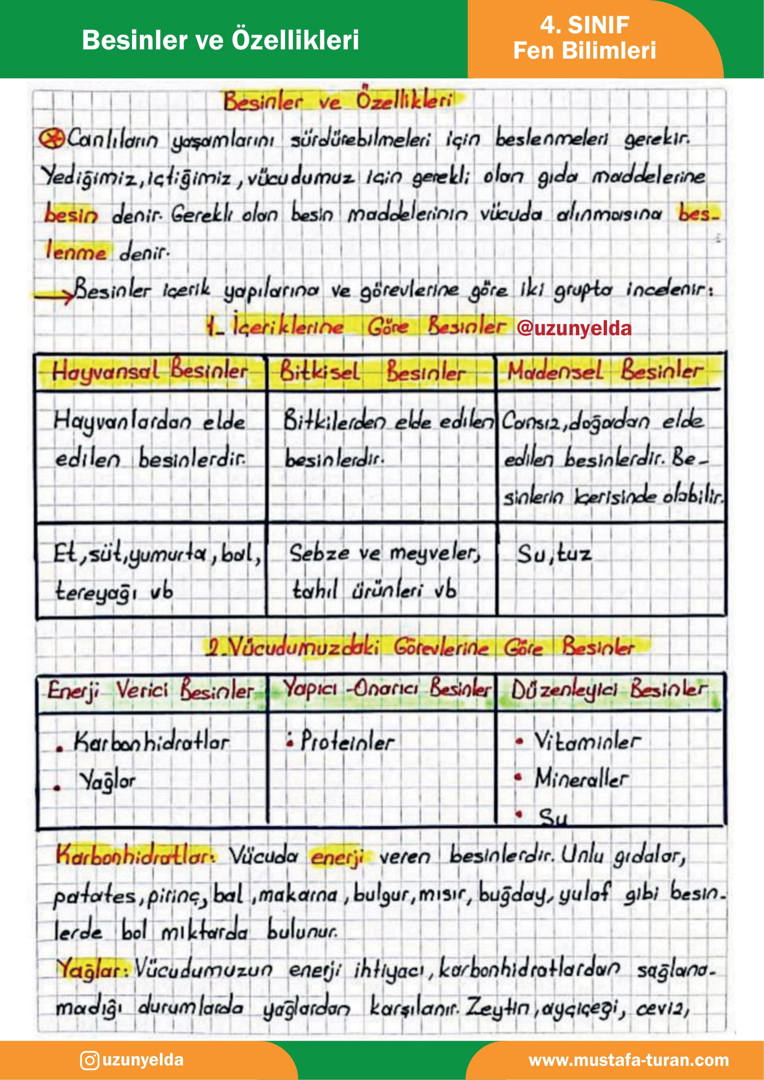 Besinler ve Özellikleri
4. SINIF
Fen Bilimleri
Besinler ve Özellikleri
Canlıların yaşamlarını sürdürebilmeleri için beslenmeleri gerekir.
Yediğimiz, içtiğimiz, vücudumuz için gerekli olan gıda maddelerine
besin denir. Gerekli olan besin maddelerinin vücuda alınmasına bes-
lenme denir.
→Besinler içerik yapılarına ve görevlerine göre iki grupta incelenir:
1_ İçeriklerine Göre Besinler @uzunyelda
Hayvansal Besinler
Bitkisel Besinler
Madensel Besinler
Hayvanlardan elde
edilen besinlerdir.
Bitkilerden elde edilen
besinlerdir.
Cansız, doğadan elde
edilen besinlerdir. Be-
sinlerin içerisinde olabilir.
Et, süt, yumurta, bal,
tereyağı vb
Sebze ve meyveler,
tahıl ürünleri vb
Su, tuz
2. Vücudumuzdaki Görevlerine Göre Besinler
Enerji Verici Besinler
Yapıcı-Onarıcı Besinler
Düzenleyici Besinler
• Karbonhidratlar
• Yağlar
: Proteinler
• Vitaminler
• Mineraller
• Su
Karbonhidratlar: Vücuda enerji veren besinlerdir. Unlu gıdalar,
patates, pirinç, bal, makarna, bulgur, mısır, buğday, yulaf gibi besin-
lerde bol miktarda bulunur.
Yağlar: Vücudumuzun enerji ihtiyacı, karbonhidratlardan sağlana-
madığı durumlarda yağlardan karşılanır. Zeytin, ayçiçeği, ceviz,
uzunyelda
www.mustafa-turan.com